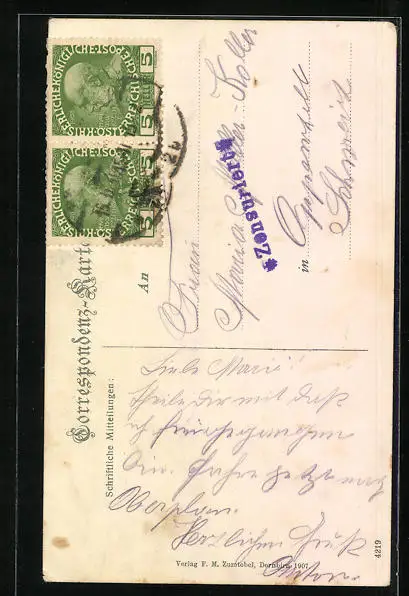 KAISERLICHE KÖNIGLICHE ÖSTERREICHISCHE POST
5 HELLER 5
KAISERLICHE KÖNIGLICHE ÖSTERREICHISCHE POST
5 HELLER 5
Correspondenz-Karte
An
Frau
Maria Müller-Koller
Zensuriert
in Appenzell
Schweiz
Schriftliche Mitteilungen:
Liebe Marie!
Theile Dir mit daß
ich
bin. fahre jetzt nach
Oberplan.
Herzlichen Gruß
Anton
Verlag F. M. Zumtobel, Dornbirn 1907
4219